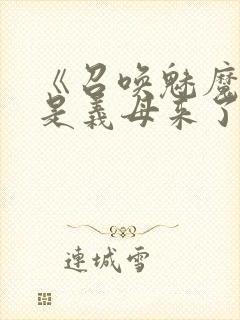 《召唤魅魔
是義母来了
連城雪